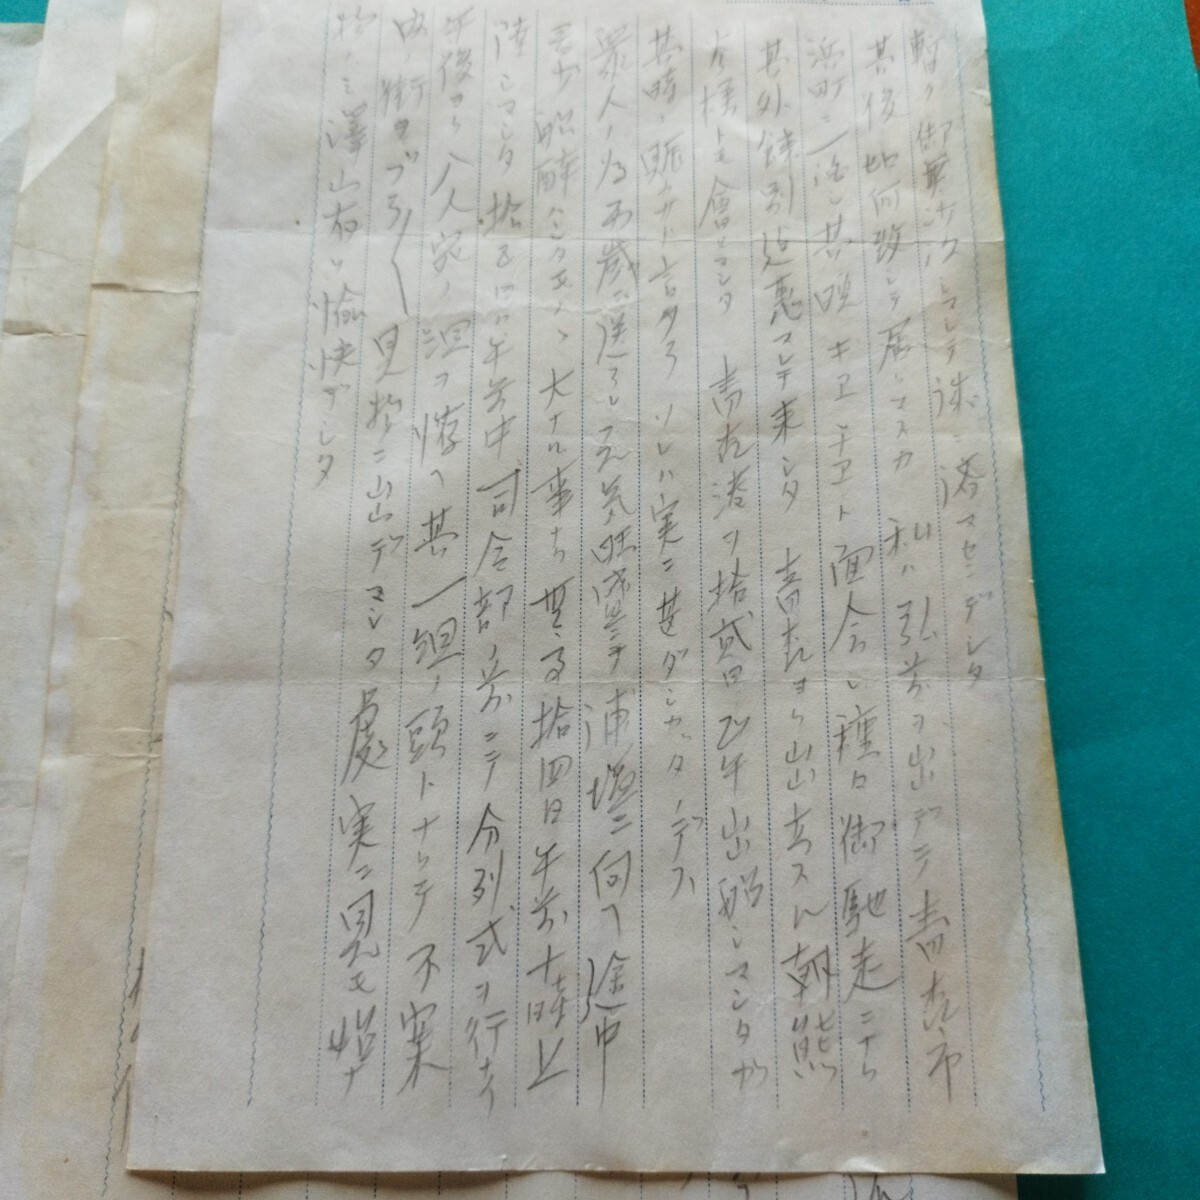 暫ク御無沙汰シマシテ誠ニ済マセンデシタ
其後如何致シテ居シマスカ 私ハ弘前ヲ出デテ青森市
浜町ニ一泊シ其晩キヱチヱト面会シ種々御馳走ニナリ
其外餞別迄恵マレテ来シタ 青森ヨリ出立スル朝熊
様トモ會ヒマシタ 青森港ヲ拾貳日正午出船シマシタガ
其時ノ賑カサト言タラ ソレハ実ニ甚ダシカッタノデス
衆人ノ万歳ニ送ラレ元気旺盛ニテ浦塩ニ向フ途中
多少船酔ヘシタモノヽ大ナル事ナク無事拾四日午前十時上
陸シマシタ 拾五日ハ午前中司令部ノ前ニテ分列式ヲ行ナイ
午後カラ八人宛ノ組ヲ拵ヘ其一組ノ頭トナッテ不案
内ノ街ヲブラ〱見物ニ出デマシタ處実ニ見モ
物ノミ澤山有リ愉快デシタ